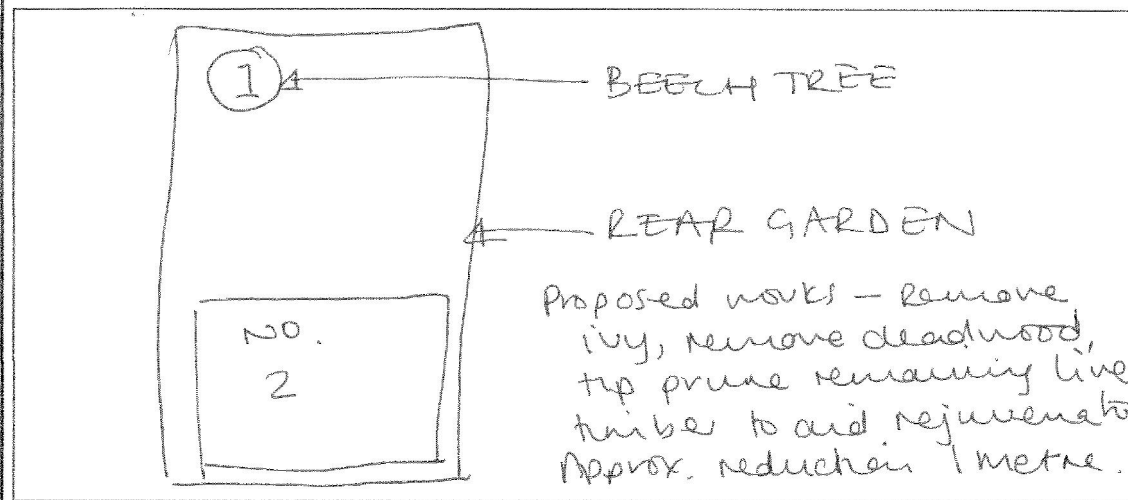 1
BEECH TREE
REAR GARDEN
Proposed works - Remove
ivy, remove deadwood,
tip prune remaining live
timber to aid rejuvenatio
Approx. reduction 1 metre.
NO.
2